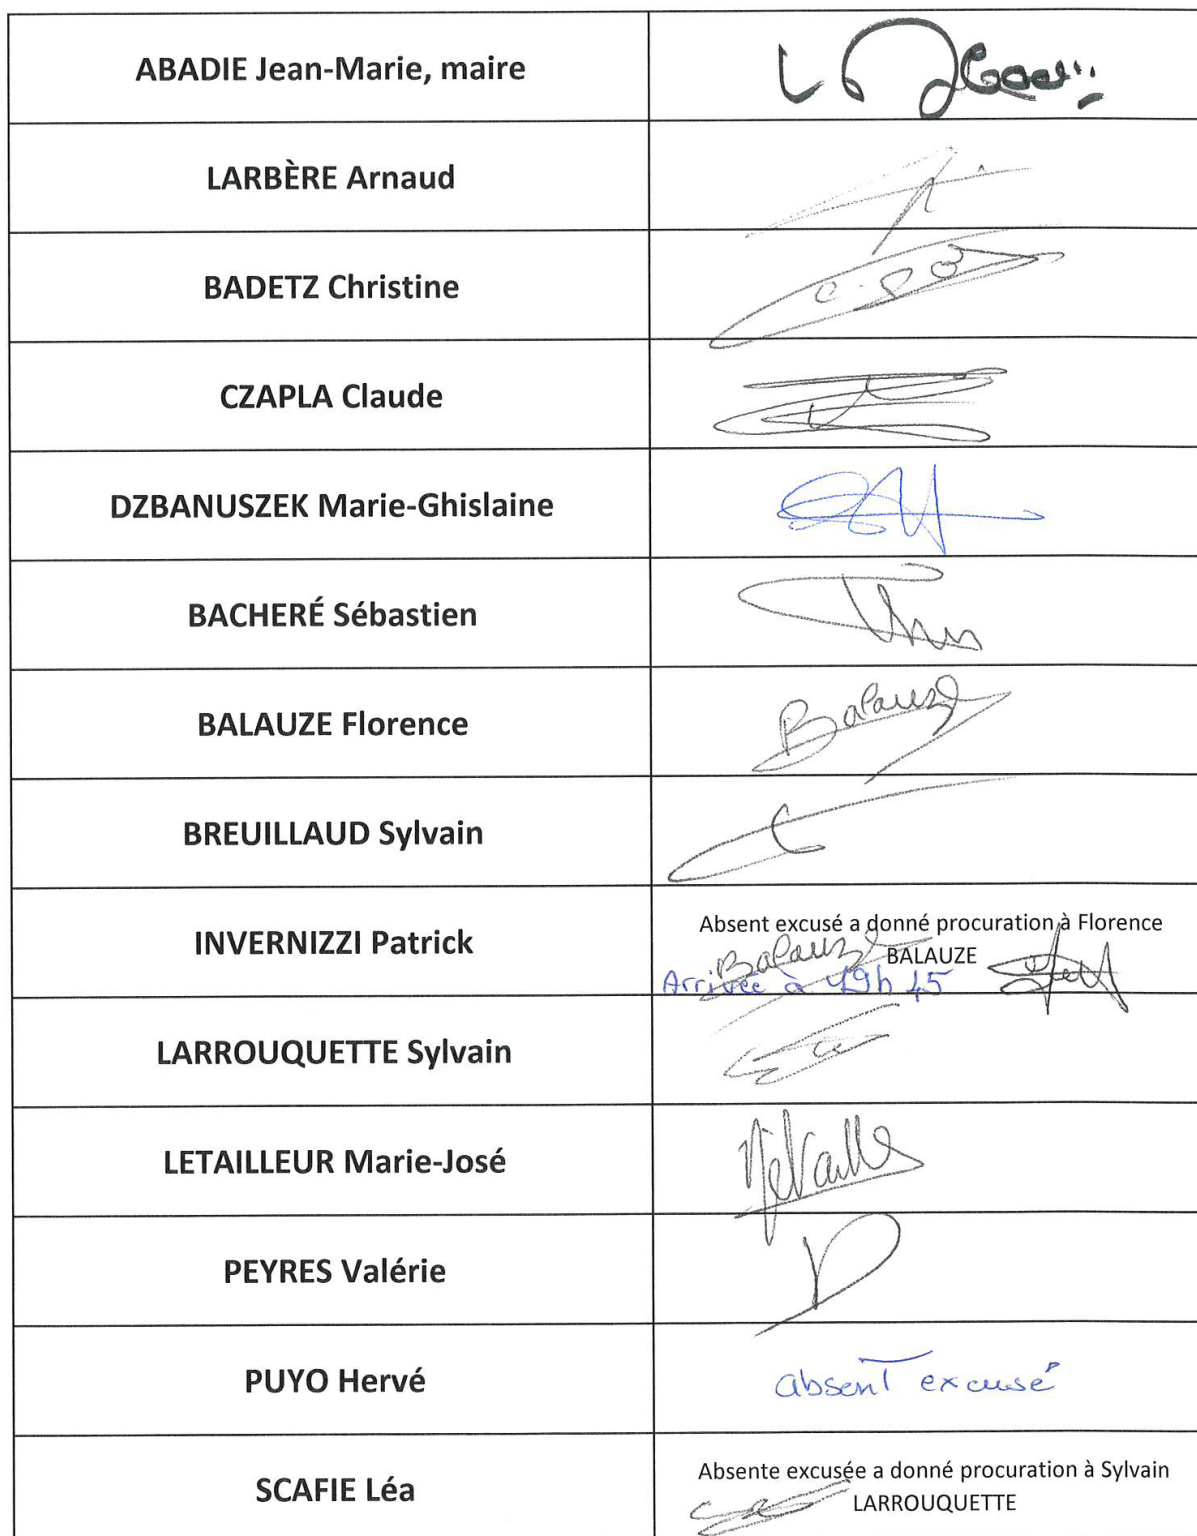 ABADIE Jean-Marie, maire
LARBÈRE Arnaud
BADETZ Christine
CZAPLA Claude
DZBANUSZEK Marie-Ghislaine
BACHERÉ Sébastien
BALAUZE Florence
Balauze
BREUILLAUD Sylvain
INVERNIZZI Patrick
Absent excusé a donné procuration à Florence
BALAUZE
Balauze
Arrivée à 19h45
LARROUQUETTE Sylvain
LETAILLEUR Marie-José
PEYRES Valérie
PUYO Hervé
absent excusé
SCAFIE Léa
Absente excusée a donné procuration à Sylvain
LARROUQUETTE